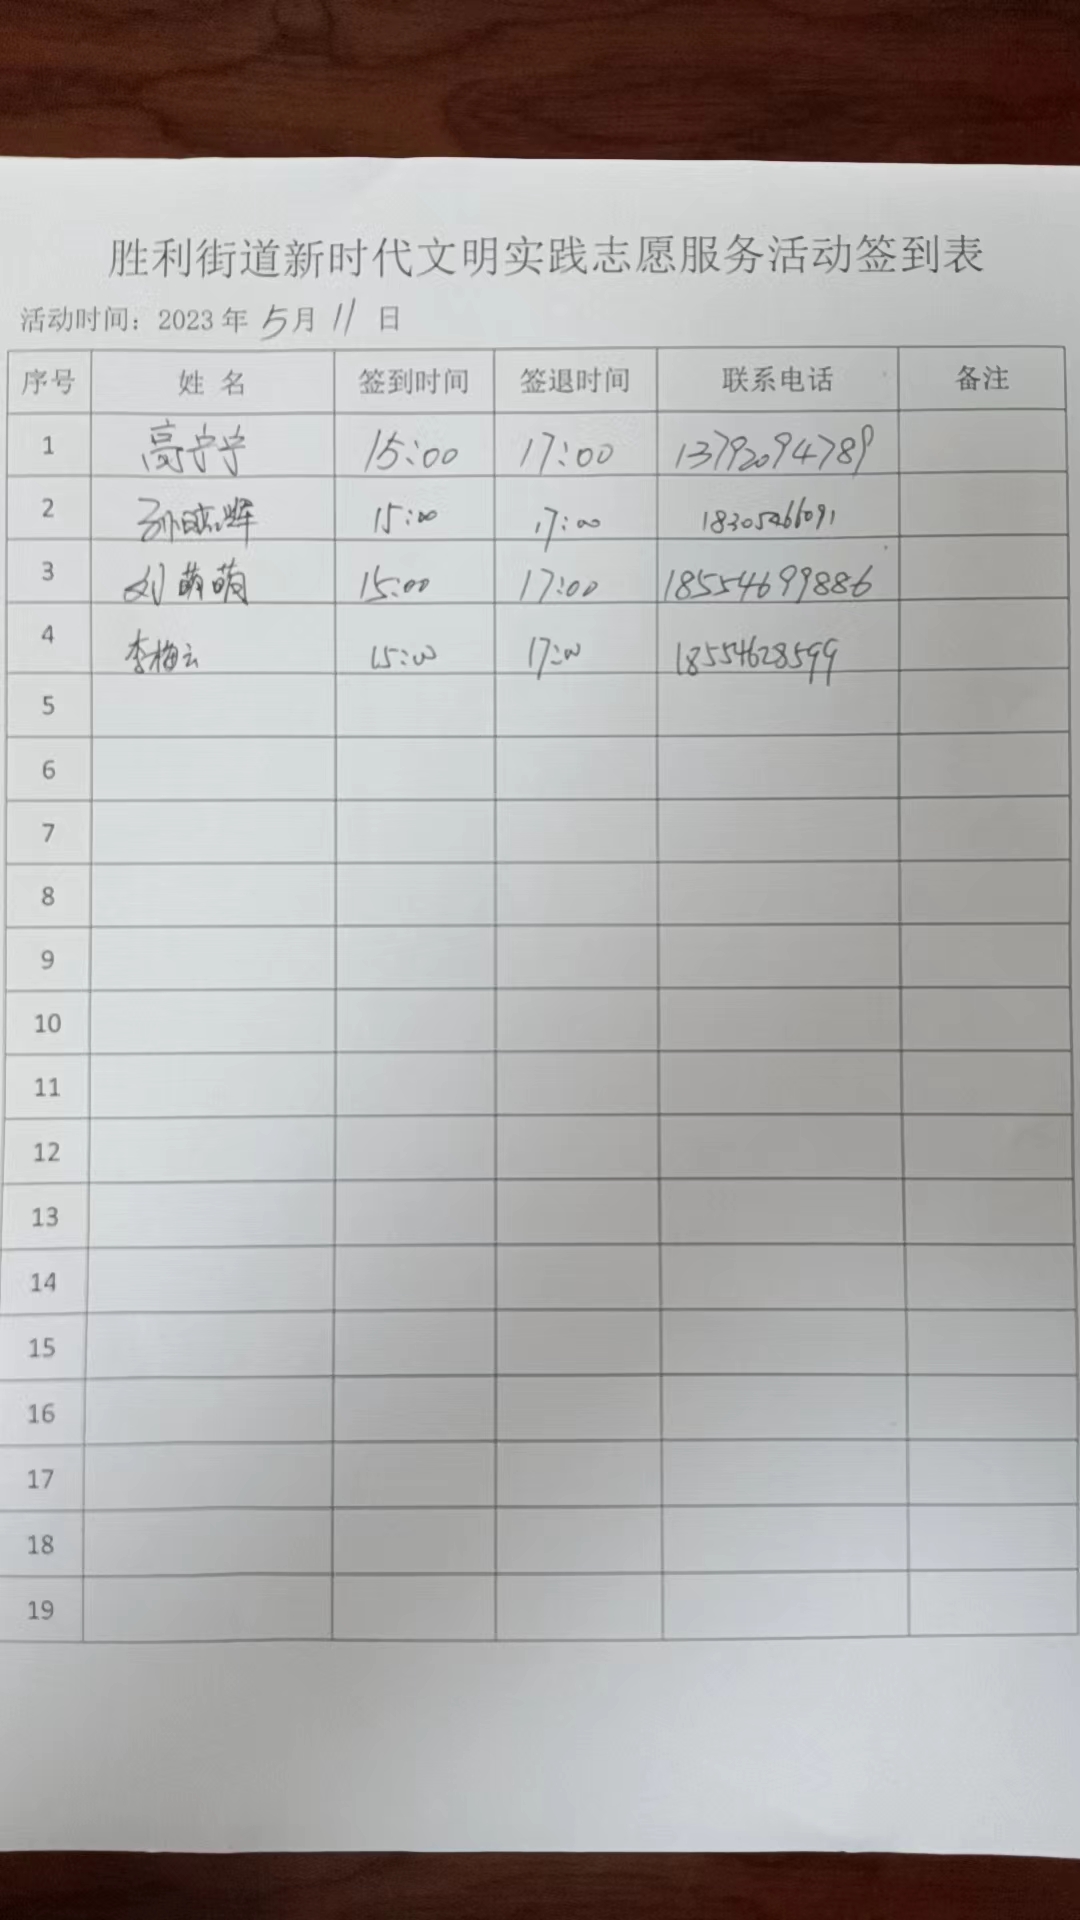 胜利街道新时代文明实践志愿服务活动签到表
活动时间：2023年 5月 11 日
序号 姓 名 签到时间 签退时间 联系电话 备注
1 高宁宁 15:00 17:00 13792094789
2 15:00 17:00 18305466091
3 刘萌萌 15:00 17:00 18554699886
4 李梅云 15:00 17:00 18554628599
5
6
7
8
9
10
11
12
13
14
15
16
17
18
19